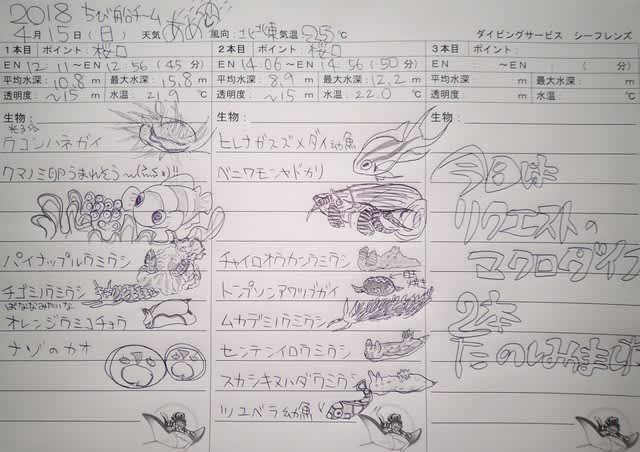 2018 ちび船チーム
4月15日(日) 天気 あめ 風向: 北東 気温 25℃ ダイビングサービス シーフレンズ
1本目 ポイント: 桜口
EN 12:11〜EN 12:56 (45分)
平均水深: 10.8m 最大水深: 15.8m
透明度: 〜15m 水温: 21.9℃
生物:
光る
ウコンハネガイ
クマノミ卵うまれそう〜
パイナップルウミウシ
チゴミノウミウシ
ばななみたいな
オレンジウミコチョウ
ナゾのカオ
2本目 ポイント: 桜口
EN 14:06〜EN 14:56 (50分)
平均水深: 8.9m 最大水深: 12.2m
透明度: 〜15m 水温: 22.0℃
生物:
ヒレナガスズメダイ幼魚
ベニワモンヤドカリ
チャイロオウカンウミウシ
トンプソンアワツブガイ
ムカデミノウミウシ
センテンイロウミウシ
スカシキヌハダウミウシ
ツユベラ幼魚
3本目 ポイント:
EN : 〜EN : ( 分)
平均水深: m 最大水深: m
透明度: m 水温: ℃
生物:
今日は
リクエストの
マクロダイブ
2本
たのしみました